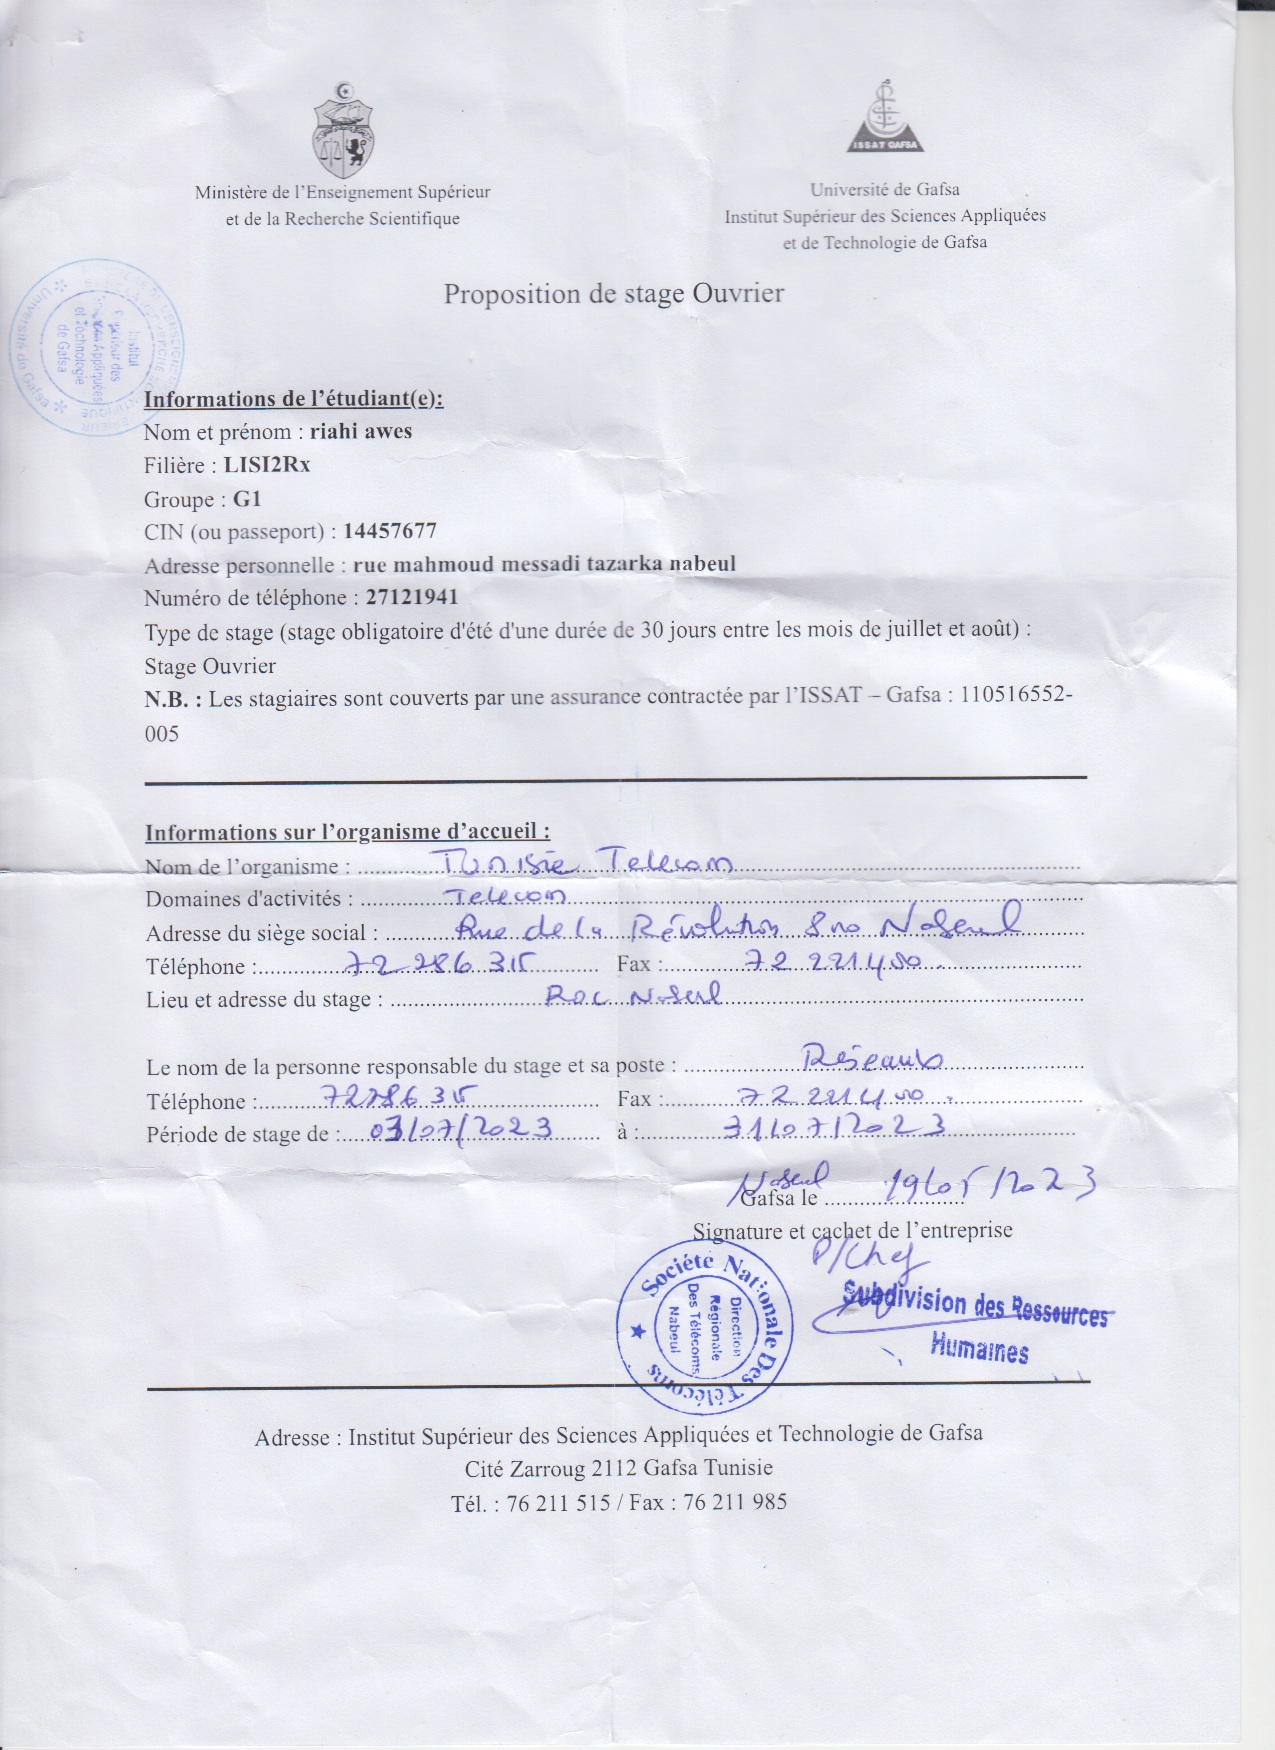 ISSAT GAFSA
Ministère de l'Enseignement Supérieur
et de la Recherche Scientifique
Université de Gafsa
Institut Supérieur des Sciences Appliquées
et de Technologie de Gafsa
Proposition de stage Ouvrier
Université de Gafsa
Institut
Supérieur des
Sciences Appliquées
et Technologie
de Gafsa
Informations de l'étudiant(e):
Nom et prénom : riahi awes
Filière : LISI2Rx
Groupe : G1
CIN (ou passeport) : 14457677
Adresse personnelle : rue mahmoud messadi tazarka nabeul
Numéro de téléphone : 27121941
Type de stage (stage obligatoire d'été d'une durée de 30 jours entre les mois de juillet et août) :
Stage Ouvrier
N.B. : Les stagiaires sont couverts par une assurance contractée par l'ISSAT – Gafsa : 110516552-
005
Informations sur l'organisme d'accueil :
Nom de l'organisme : Tunisie Telecom
Domaines d'activités : Telecom
Adresse du siège social : Rue de la Révolution 8000 Nabeul
Téléphone : 72 286 315 Fax : 72 221 400
Lieu et adresse du stage : Nabeul
Le nom de la personne responsable du stage et sa poste : Réseaux
Téléphone : 72286 315 Fax : 72 221 400
Période de stage de : 03/07/2023 à : 31/07/2023
Nabeul
Gafsa le 19/05/2023
Signature et cachet de l'entreprise
P/Chef
Subdivision des Ressources
Humaines
Société Nationale Des Télécoms
Direction
Régionale
Des Télécoms
Nabeul
Adresse : Institut Supérieur des Sciences Appliquées et Technologie de Gafsa
Cité Zarroug 2112 Gafsa Tunisie
Tél. : 76 211 515 / Fax : 76 211 985